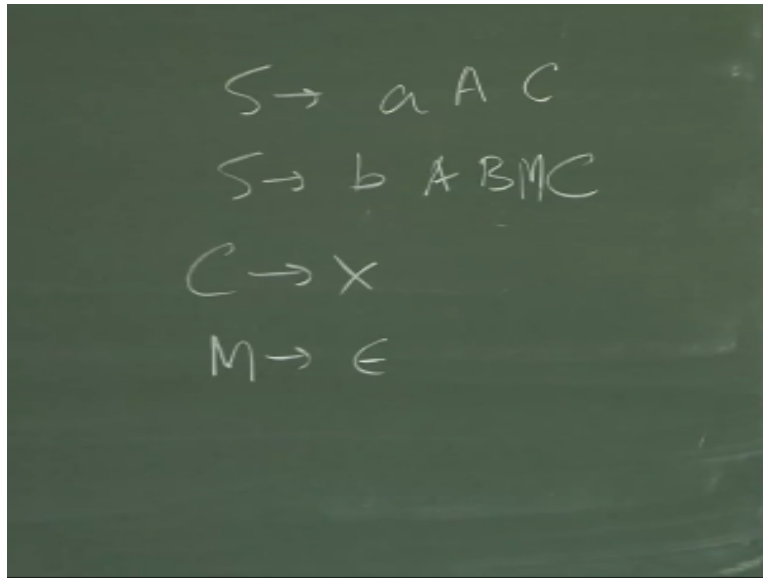 S → a A C
S → b A B M C
C → X
M → ϵ